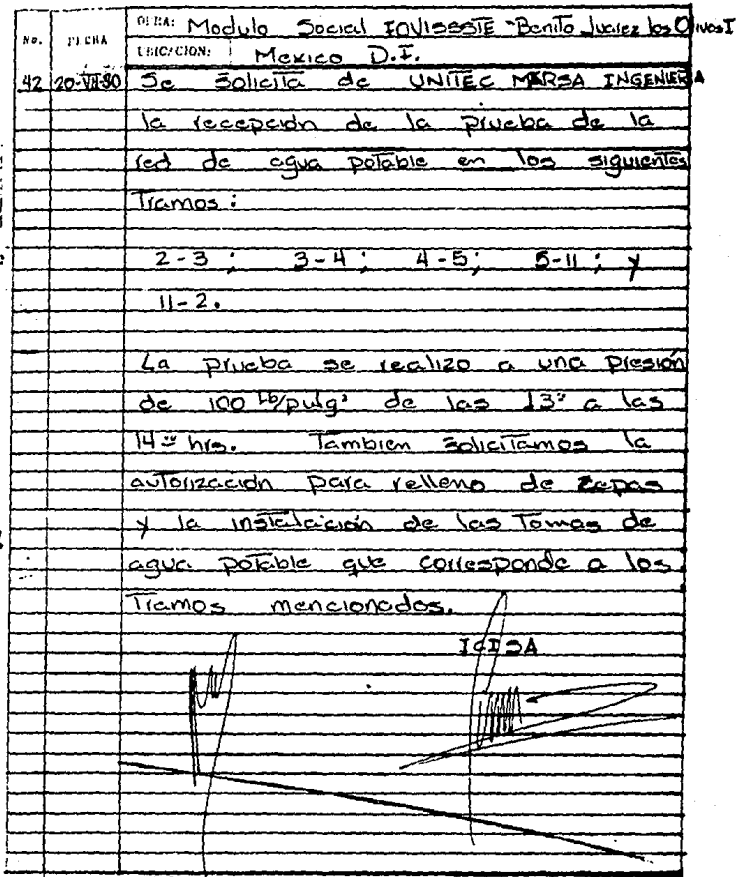 OBRA: Modulo Social FOVISSSTE "Benito Juarez los Olivos I
No. FECHA
UBICACION: Mexico D.F.
42 20-VII-80 Se solicita de UNITEC MARSA INGENIERIA
la recepción de la prueba de la
red de agua potable en los siguientes
Tramos:
2-3; 3-4; 4-5; 5-11; y
11-2.
La prueba se realizo a una presión
de 100 Lb/pulg² de las 13 a las
14 hrs. Tambien solicitamos la
autorización para relleno de zepas
y la instalación de las Tomas de
agua potable que corresponde a los
Tramos mencionados.
ICISA